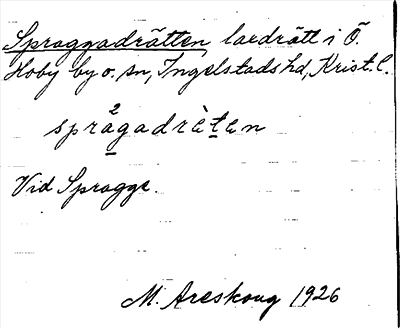 Spraggadrätten lardrätt i Ö.
Hoby by o. sn, Ingelstads hd, Krist. l.
språgadrèten
Vid Spragge.
M. Areskoug 1926